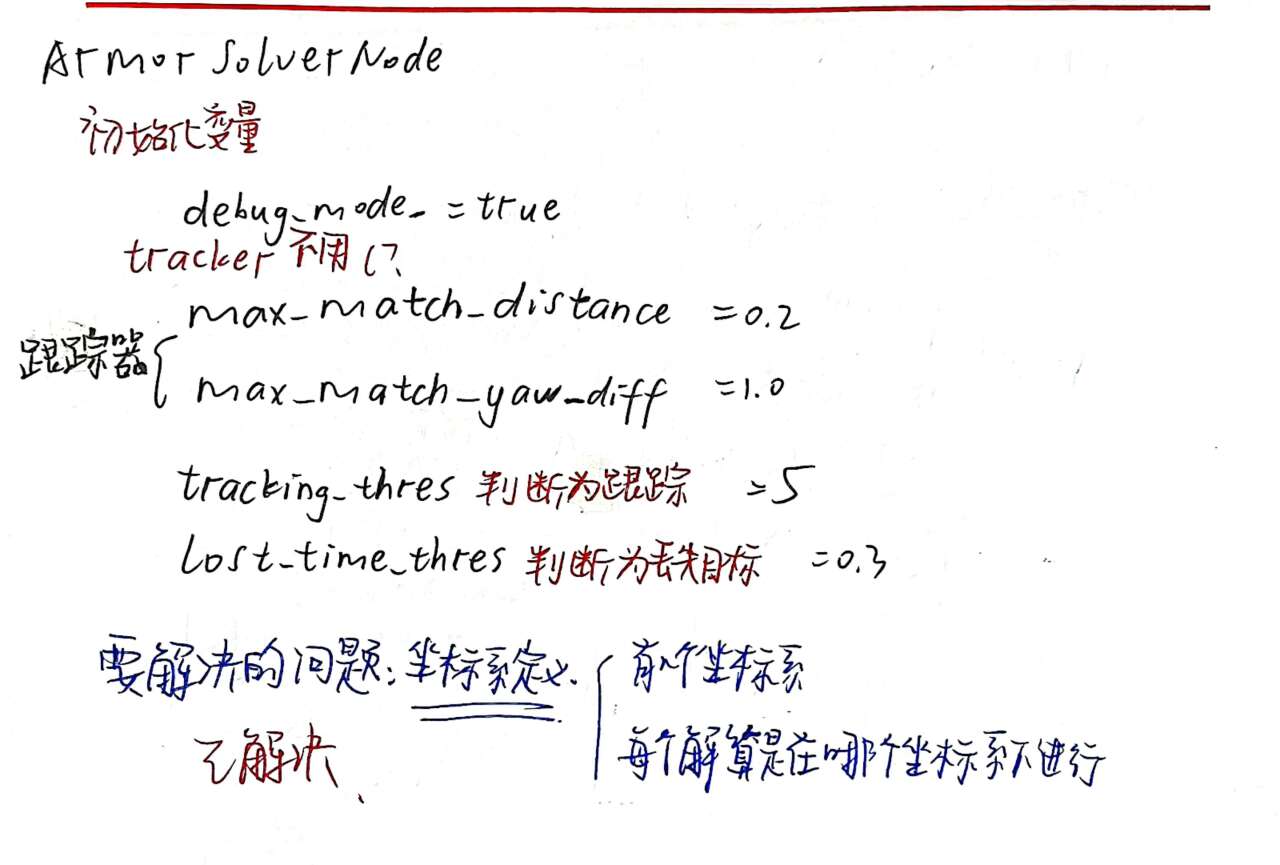 ArmorSolverNode
初始化变量
debug_mode_ = true
tracker 不用(?
max_match_distance =0.2
跟踪器{
max_match_yaw_diff =1.0
tracking_thres 判断为跟踪 =5
lost_time_thres 判断为丢失目标 =0.3
要解决的问题: 坐标系定义. { 有n个坐标系
已解决、 每个解算是在哪个坐标系下进行